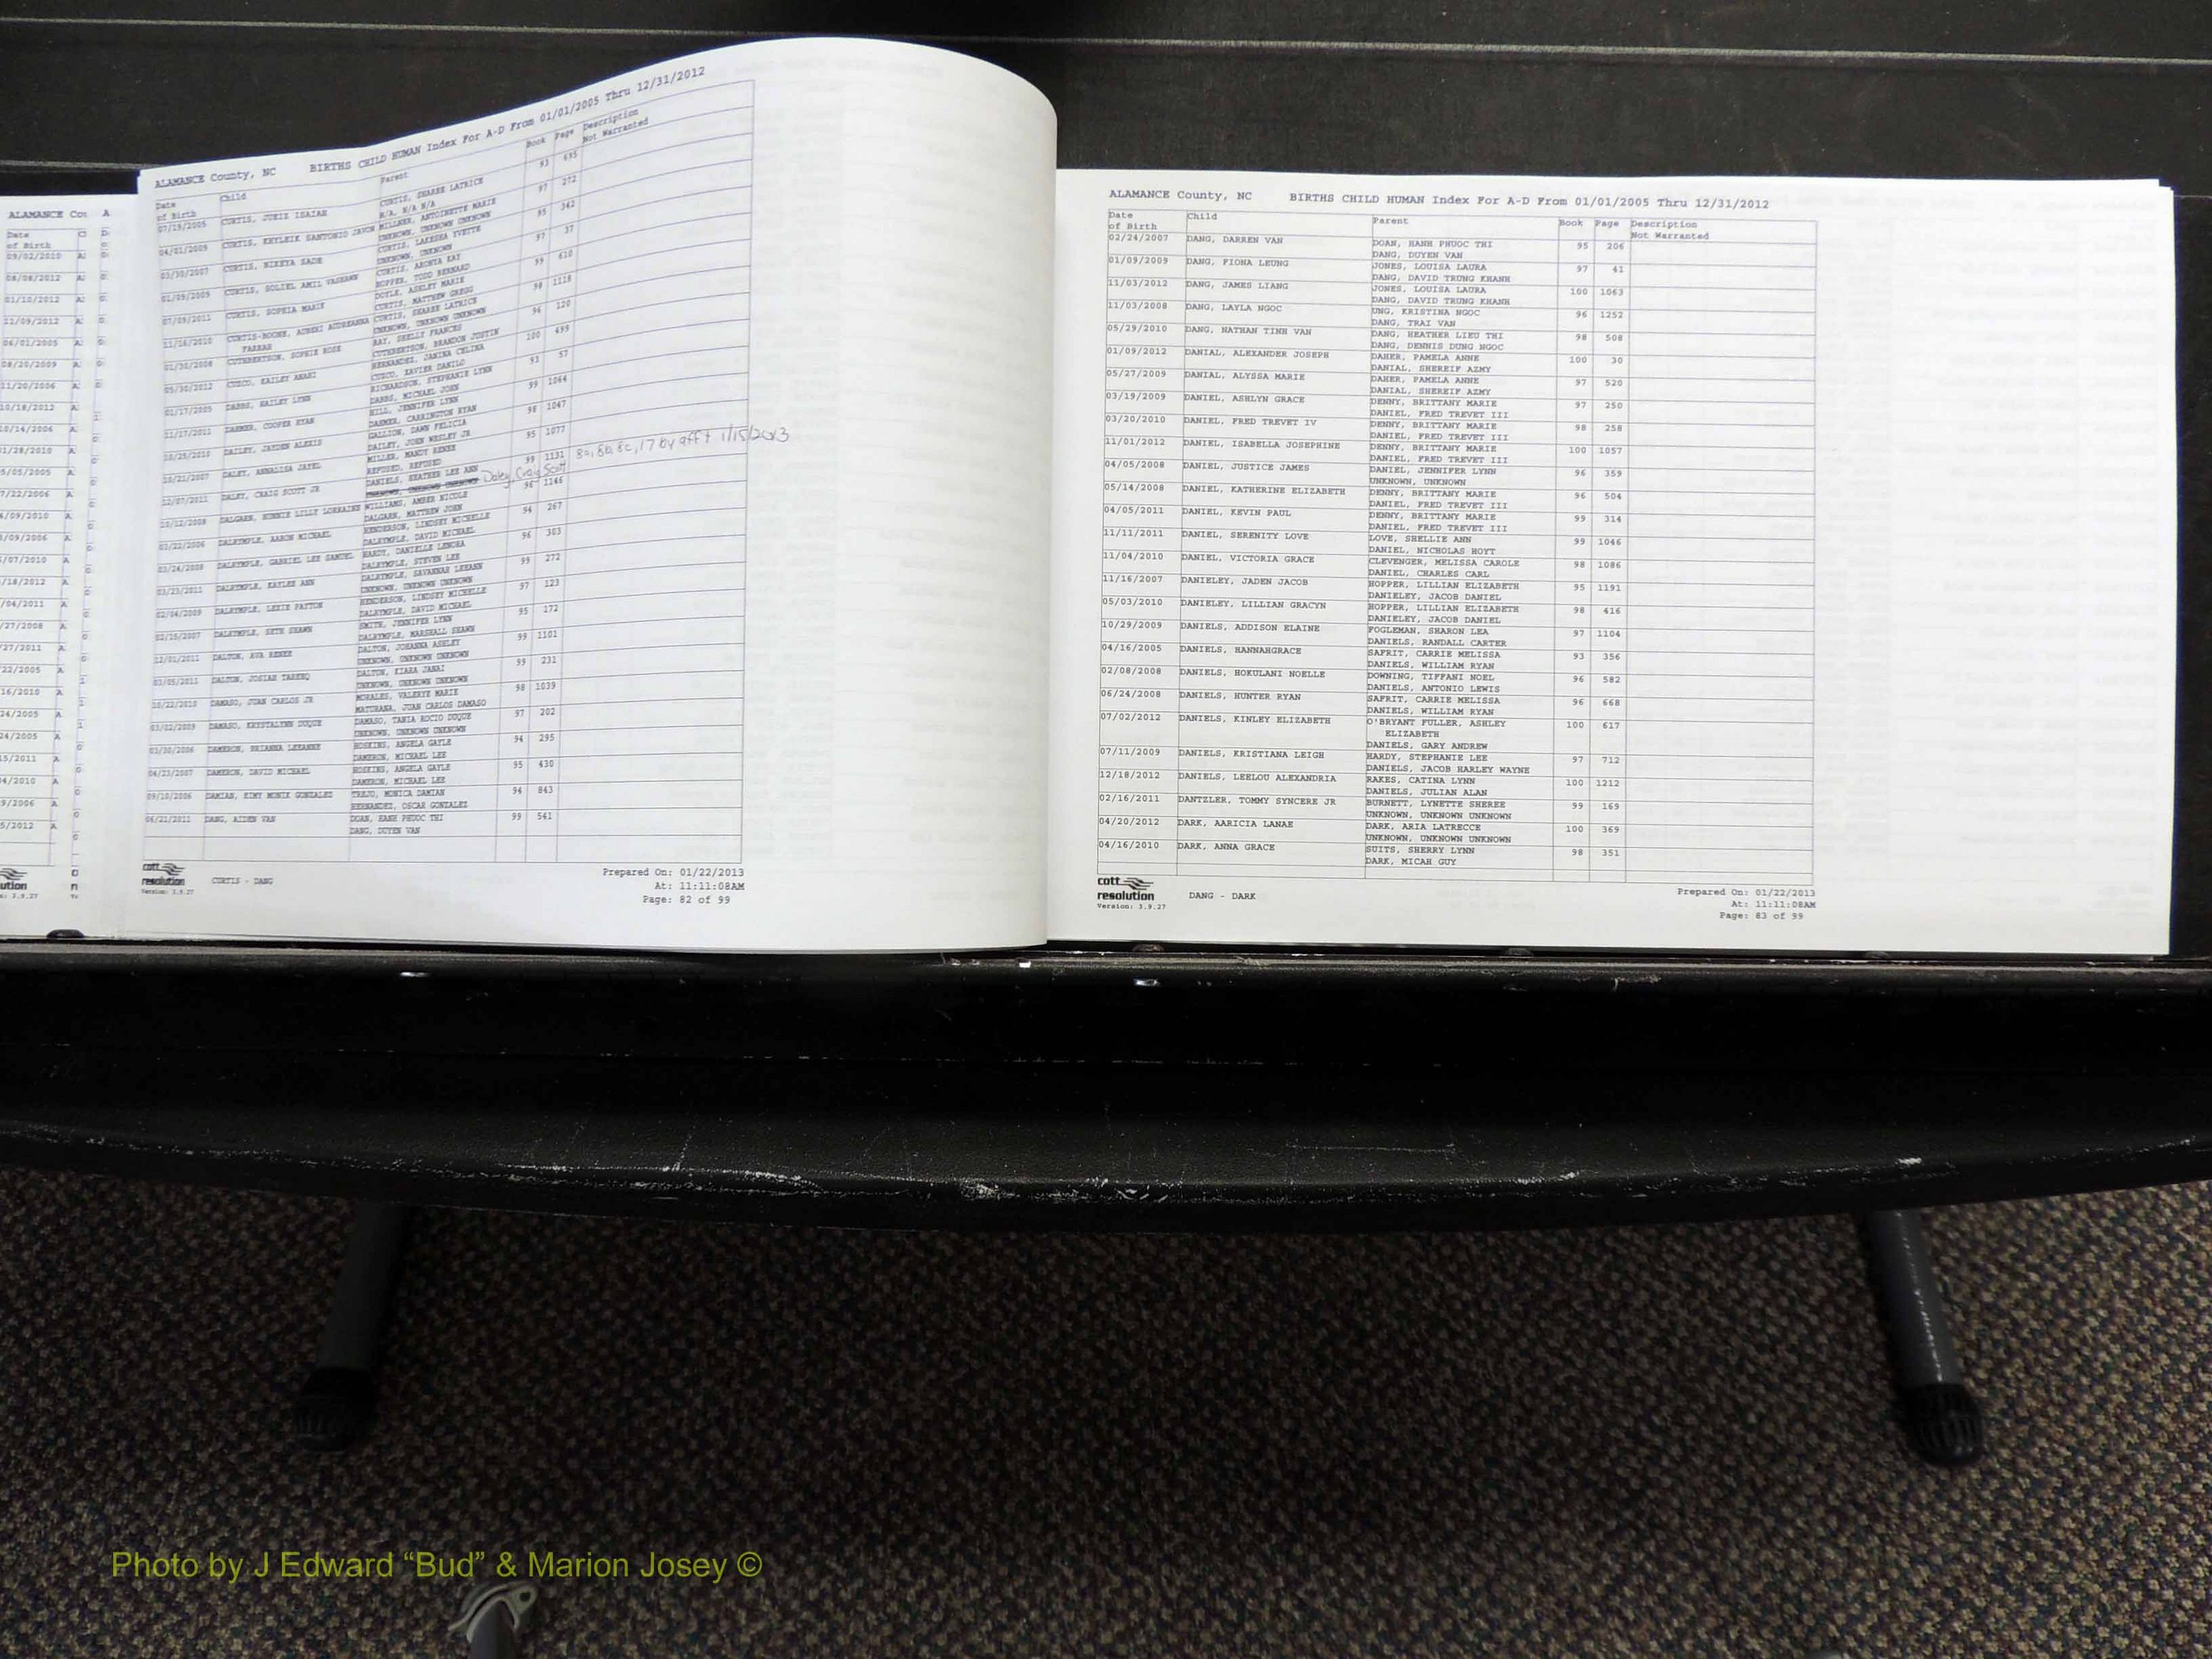 ALAMANCE Cou
Date
of Birth
09/02/2010
08/08/2012
01/10/2012
11/09/2012
06/01/2005
08/20/2009
11/20/2006
10/18/2012
ALAMANCE County, NC BIRTHS CHILD HUMAN Index For A-D From 01/01/2005 Thru 12/31/2012
Date of Birth Child Parent Book Page Description Not Warranted
07/19/2005 CURTIS, JUEIZ ISAIAH CURTIS, SHAREE LATRICE 93 695
N/A, N/A N/A
04/01/2009 CURTIS, KHYLEIK SANTONIO JAVON MILLNER, ANTOINETTE MARIE 97 272
UNKNOWN, UNKNOWN UNKNOWN
03/30/2007 CURTIS, NIKEYA SADE CURTIS, LAKESHA YVETTE 95 342
UNKNOWN, UNKNOWN
01/09/2009 CURTIS, SOLIEL AMIL VASHAWN CURTIS, ARONYA KAY 97 37
HOPPER, TODD BERNARD
07/09/2011 CURTIS, SOPHIA MARIE DOYLE, ASHLEY MARIE 99 610
CURTIS, MATTHEW GREGG
11/16/2010 CURTIS-BOONE, AUBREI AUDREANNA CURTIS, SHAREE LATRICE 98 1118
FARRAR UNKNOWN, UNKNOWN UNKNOWN
01/30/2008 CUTHBERTSON, SOPHIE ROSE RAY, SHELLY FRANCES 96 120
CUTHBERTSON, BRANDON JUSTIN
05/30/2012 CUZCO, KAILEY ANAHI HERNANDEZ, JANINA CELINA 100 499
CUZCO, XAVIER DANILO
01/17/2005 DABBS, HAILEY LYNN RICHARDSON, STEPHANIE LYNN 93 57
DABBS, MICHAEL JOHN
11/17/2011 DAEMER, COOPER RYAN HILL, JENNIFER LYNN 99 1064
DAEMER, CARRINGTON RYAN
10/25/2010 DAILEY, JAYDEN ALEXIS GALLION, DAWN FELICIA 98 1047
DAILEY, JOHN WESLEY JR
10/21/2007 DALEY, ANNALISA JAYEL MILLER, MANDY RENEE 95 1077
REFUSED, REFUSED
12/07/2011 DALEY, CRAIG SCOTT JR DANIELS, HEATHER LEE ANN 99 1131 8a, 8b, 8c, 17 by aff+ 1/15/2013
UNKNOWN, UNKNOWN UNKNOWN Daley, Craig Scott
10/12/2008 DALGARN, BONNIE LILLY LORRAINE WILLIAMS, AMBER NICOLE 96 1146
DALGARN, MATTHEW JOHN
03/22/2006 DALRYMPLE, AARON MICHAEL HENDERSON, LINDSEY MICHELLE 94 267
DALRYMPLE, DAVID MICHAEL
03/24/2008 DALRYMPLE, GABRIEL LEE SAMUEL HARDY, DANIELLE LENORA 96 303
DALRYMPLE, STEVEN LEE
03/23/2011 DALRYMPLE, KAYLEE ANN DALRYMPLE, SAVANNAH LEEANN 99 272
UNKNOWN, UNKNOWN UNKNOWN
02/04/2009 DALRYMPLE, LEXIE PAYTON HENDERSON, LINDSEY MICHELLE 97 123
DALRYMPLE, DAVID MICHAEL
02/15/2007 DALRYMPLE, SETH SHAWN SMITH, JENNIFER LYNN 95 172
DALRYMPLE, MARSHALL SHAWN
12/01/2011 DALTON, AVA RENEE DALTON, JOHANNA ASHLEY 99 1101
UNKNOWN, UNKNOWN UNKNOWN
03/05/2011 DALTON, JOSIAH TAREEQ DALTON, KIARA JANAI 99 231
UNKNOWN, UNKNOWN UNKNOWN
10/22/2010 DAMASO, JUAN CARLOS JR MORALES, VALERYE MARIE 98 1039
MATURANA, JUAN CARLOS DAMASO
03/02/2009 DAMASO, KRYSTALYNN DUQUE DAMASO, TANIA ROCIO DUQUE 97 202
UNKNOWN, UNKNOWN UNKNOWN
03/30/2006 DAMERON, BRIANNA LEEANNE HOSKINS, ANGELA GAYLE 94 295
DAMERON, MICHAEL LEE
04/23/2007 DAMERON, DAVID MICHAEL HOSKINS, ANGELA GAYLE 95 430
DAMERON, MICHAEL LEE
09/10/2006 DAMIAN, KIMY MONIK GONZALEZ TREJO, MONICA DAMIAN 94 843
HERNANDEZ, OSCAR GONZALEZ
06/21/2011 DANG, AIDEN VAN DOAN, HANH PHUOC THI 99 541
DANG, DUYEN VAN
cott resolution
Version: 3.9.27
CURTIS - DANG
Prepared On: 01/22/2013
At: 11:11:08AM
Page: 82 of 99
ALAMANCE County, NC BIRTHS CHILD HUMAN Index For A-D From 01/01/2005 Thru 12/31/2012
Date of Birth Child Parent Book Page Description Not Warranted
02/24/2007 DANG, DARREN VAN DOAN, HANH PHUOC THI 95 206
DANG, DUYEN VAN
01/09/2009 DANG, FIONA LEUNG JONES, LOUISA LAURA 97 41
DANG, DAVID TRUNG KHANH
11/03/2012 DANG, JAMES LIANG JONES, LOUISA LAURA 100 1063
DANG, DAVID TRUNG KHANH
11/03/2008 DANG, LAYLA NGOC UNG, KRISTINA NGOC 96 1252
DANG, TRAI VAN
05/29/2010 DANG, NATHAN TINH VAN DANG, HEATHER LIEU THI 98 508
DANG, DENNIS DUNG NGOC
01/09/2012 DANIAL, ALEXANDER JOSEPH DAHER, PAMELA ANNE 100 30
DANIAL, SHEREIF AZMY
05/27/2009 DANIAL, ALYSSA MARIE DAHER, PAMELA ANNE 97 520
DANIAL, SHEREIF AZMY
03/19/2009 DANIEL, ASHLYN GRACE DENNY, BRITTANY MARIE 97 250
DANIEL, FRED TREVET III
03/20/2010 DANIEL, FRED TREVET IV DENNY, BRITTANY MARIE 98 258
DANIEL, FRED TREVET III
11/01/2012 DANIEL, ISABELLA JOSEPHINE DENNY, BRITTANY MARIE 100 1057
DANIEL, FRED TREVET III
04/05/2008 DANIEL, JUSTICE JAMES DANIEL, JENNIFER LYNN 96 359
UNKNOWN, UNKNOWN
05/14/2008 DANIEL, KATHERINE ELIZABETH DENNY, BRITTANY MARIE 96 504
DANIEL, FRED TREVET III
04/05/2011 DANIEL, KEVIN PAUL DENNY, BRITTANY MARIE 99 314
DANIEL, FRED TREVET III
11/11/2011 DANIEL, SERENITY LOVE LOVE, SHELLIE ANN 99 1046
DANIEL, NICHOLAS HOYT
11/04/2010 DANIEL, VICTORIA GRACE CLEVENGER, MELISSA CAROLE 98 1086
DANIEL, CHARLES CARL
11/16/2007 DANIELEY, JADEN JACOB HOPPER, LILLIAN ELIZABETH 95 1191
DANIELEY, JACOB DANIEL
05/03/2010 DANIELEY, LILLIAN GRACYN HOPPER, LILLIAN ELIZABETH 98 416
DANIELEY, JACOB DANIEL
10/29/2009 DANIELS, ADDISON ELAINE FOGLEMAN, SHARON LEA 97 1104
DANIELS, RANDALL CARTER
04/16/2005 DANIELS, HANNAHGRACE SAFRIT, CARRIE MELISSA 93 356
DANIELS, WILLIAM RYAN
02/08/2008 DANIELS, HOKULANI NOELLE DOWNING, TIFFANI NOEL 96 582
DANIELS, ANTONIO LEWIS
06/24/2008 DANIELS, HUNTER RYAN SAFRIT, CARRIE MELISSA 96 668
DANIELS, WILLIAM RYAN
07/02/2012 DANIELS, KINLEY ELIZABETH O'BRYANT FULLER, ASHLEY 100 617
ELIZABETH
DANIELS, GARY ANDREW
07/11/2009 DANIELS, KRISTIANA LEIGH HARDY, STEPHANIE LEE 97 712
DANIELS, JACOB HARLEY WAYNE
12/18/2012 DANIELS, LEELOU ALEXANDRIA RAKES, CATINA LYNN 100 1212
DANIELS, JULIAN ALAN
02/16/2011 DANTZLER, TOMMY SYNCERE JR BURNETT, LYNETTE SHEREE 99 169
UNKNOWN, UNKNOWN UNKNOWN
04/20/2012 DARK, AARICIA LANAE DARK, ARIA LATRECCE 100 369
UNKNOWN, UNKNOWN UNKNOWN
04/16/2010 DARK, ANNA GRACE SUITS, SHERRY LYNN 98 351
DARK, MICAH GUY
cott resolution
Version: 3.9.27
DANG - DARK
Prepared On: 01/22/2013
At: 11:11:08AM
Page: 83 of 99
Photo by J Edward “Bud” & Marion Josey ©